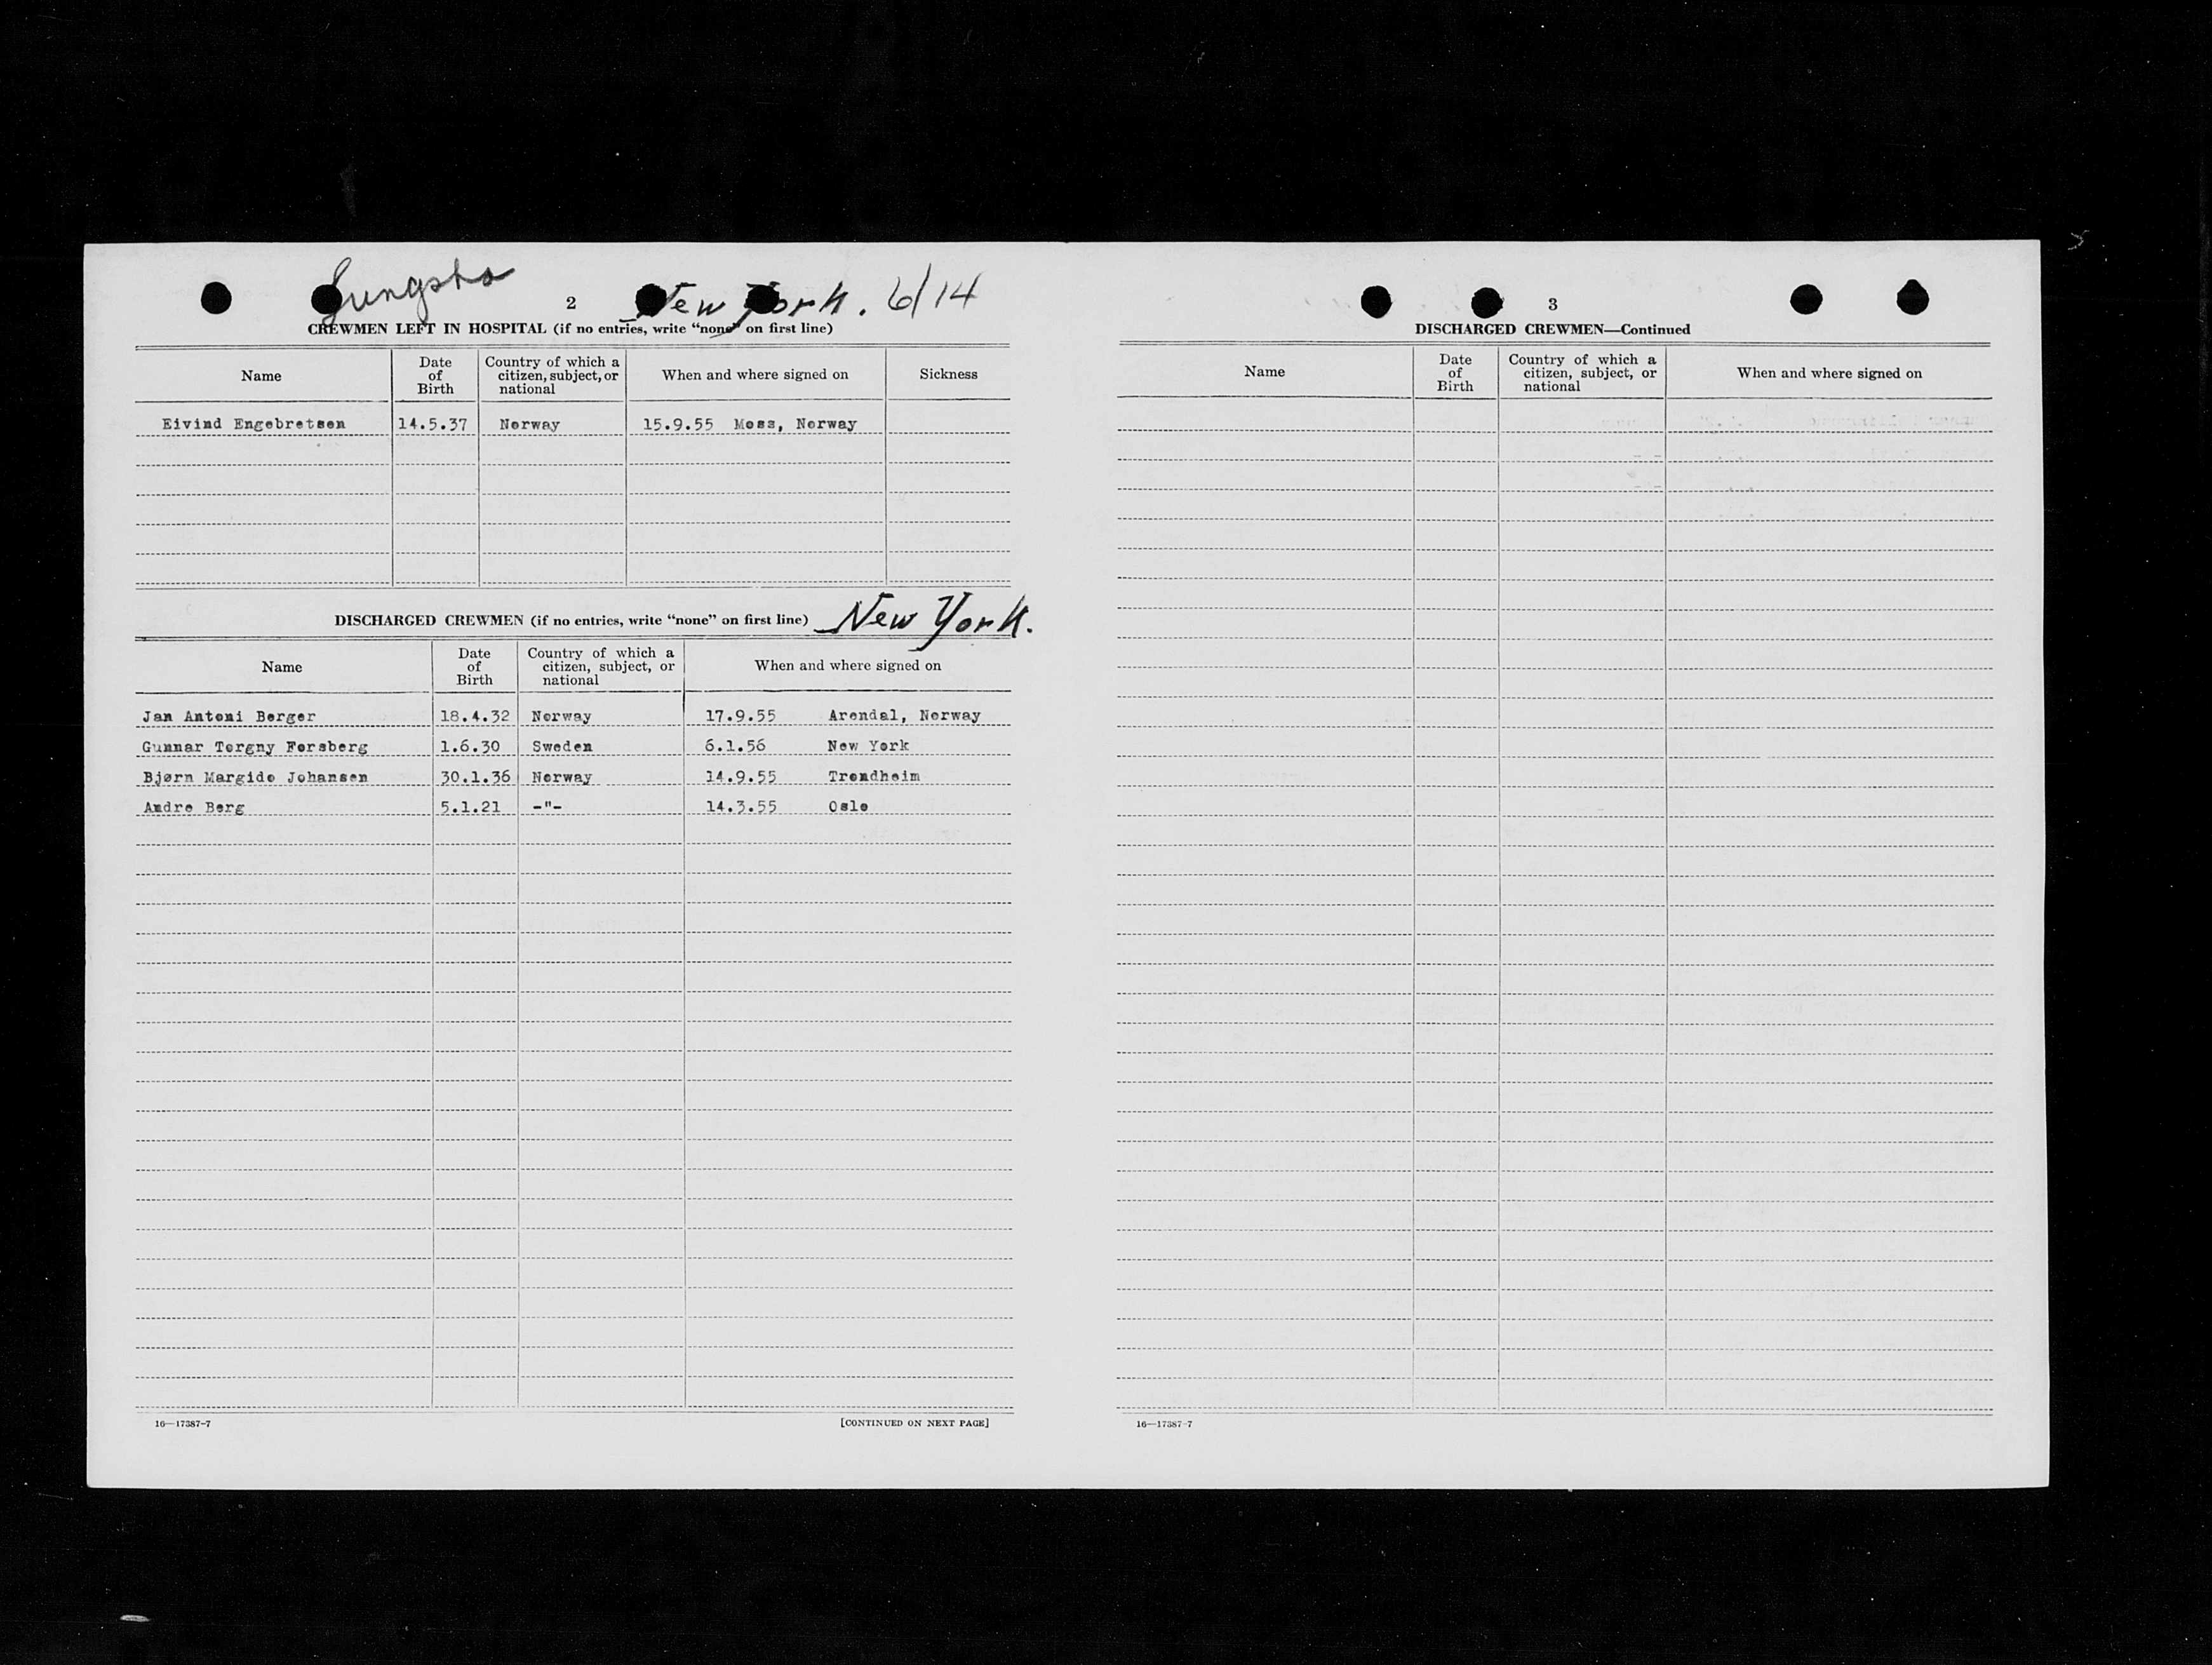 Lungsha
2 New York. 6/14
CREWMEN LEFT IN HOSPITAL (if no entries, write "none" on first line)
Name Date of Birth Country of which a citizen, subject, or national When and where signed on Sickness
Eivind Engebretsen 14.5.37 Norway 15.9.55 Moss, Norway
DISCHARGED CREWMEN (if no entries, write "none" on first line) New York.
Name Date of Birth Country of which a citizen, subject, or national When and where signed on
Jan Antoni Berger 18.4.32 Norway 17.9.55 Arendal, Norway
Gunnar Torgny Forsberg 1.6.30 Sweden 6.1.56 New York
Bjørn Margido Johansen 30.1.36 Norway 14.9.55 Trondheim
Andre Berg 5.1.21 -"- 14.3.55 Oslo
16—17387-7 [CONTINUED ON NEXT PAGE]
3
DISCHARGED CREWMEN—Continued
Name Date of Birth Country of which a citizen, subject, or national When and where signed on
16—17387-7